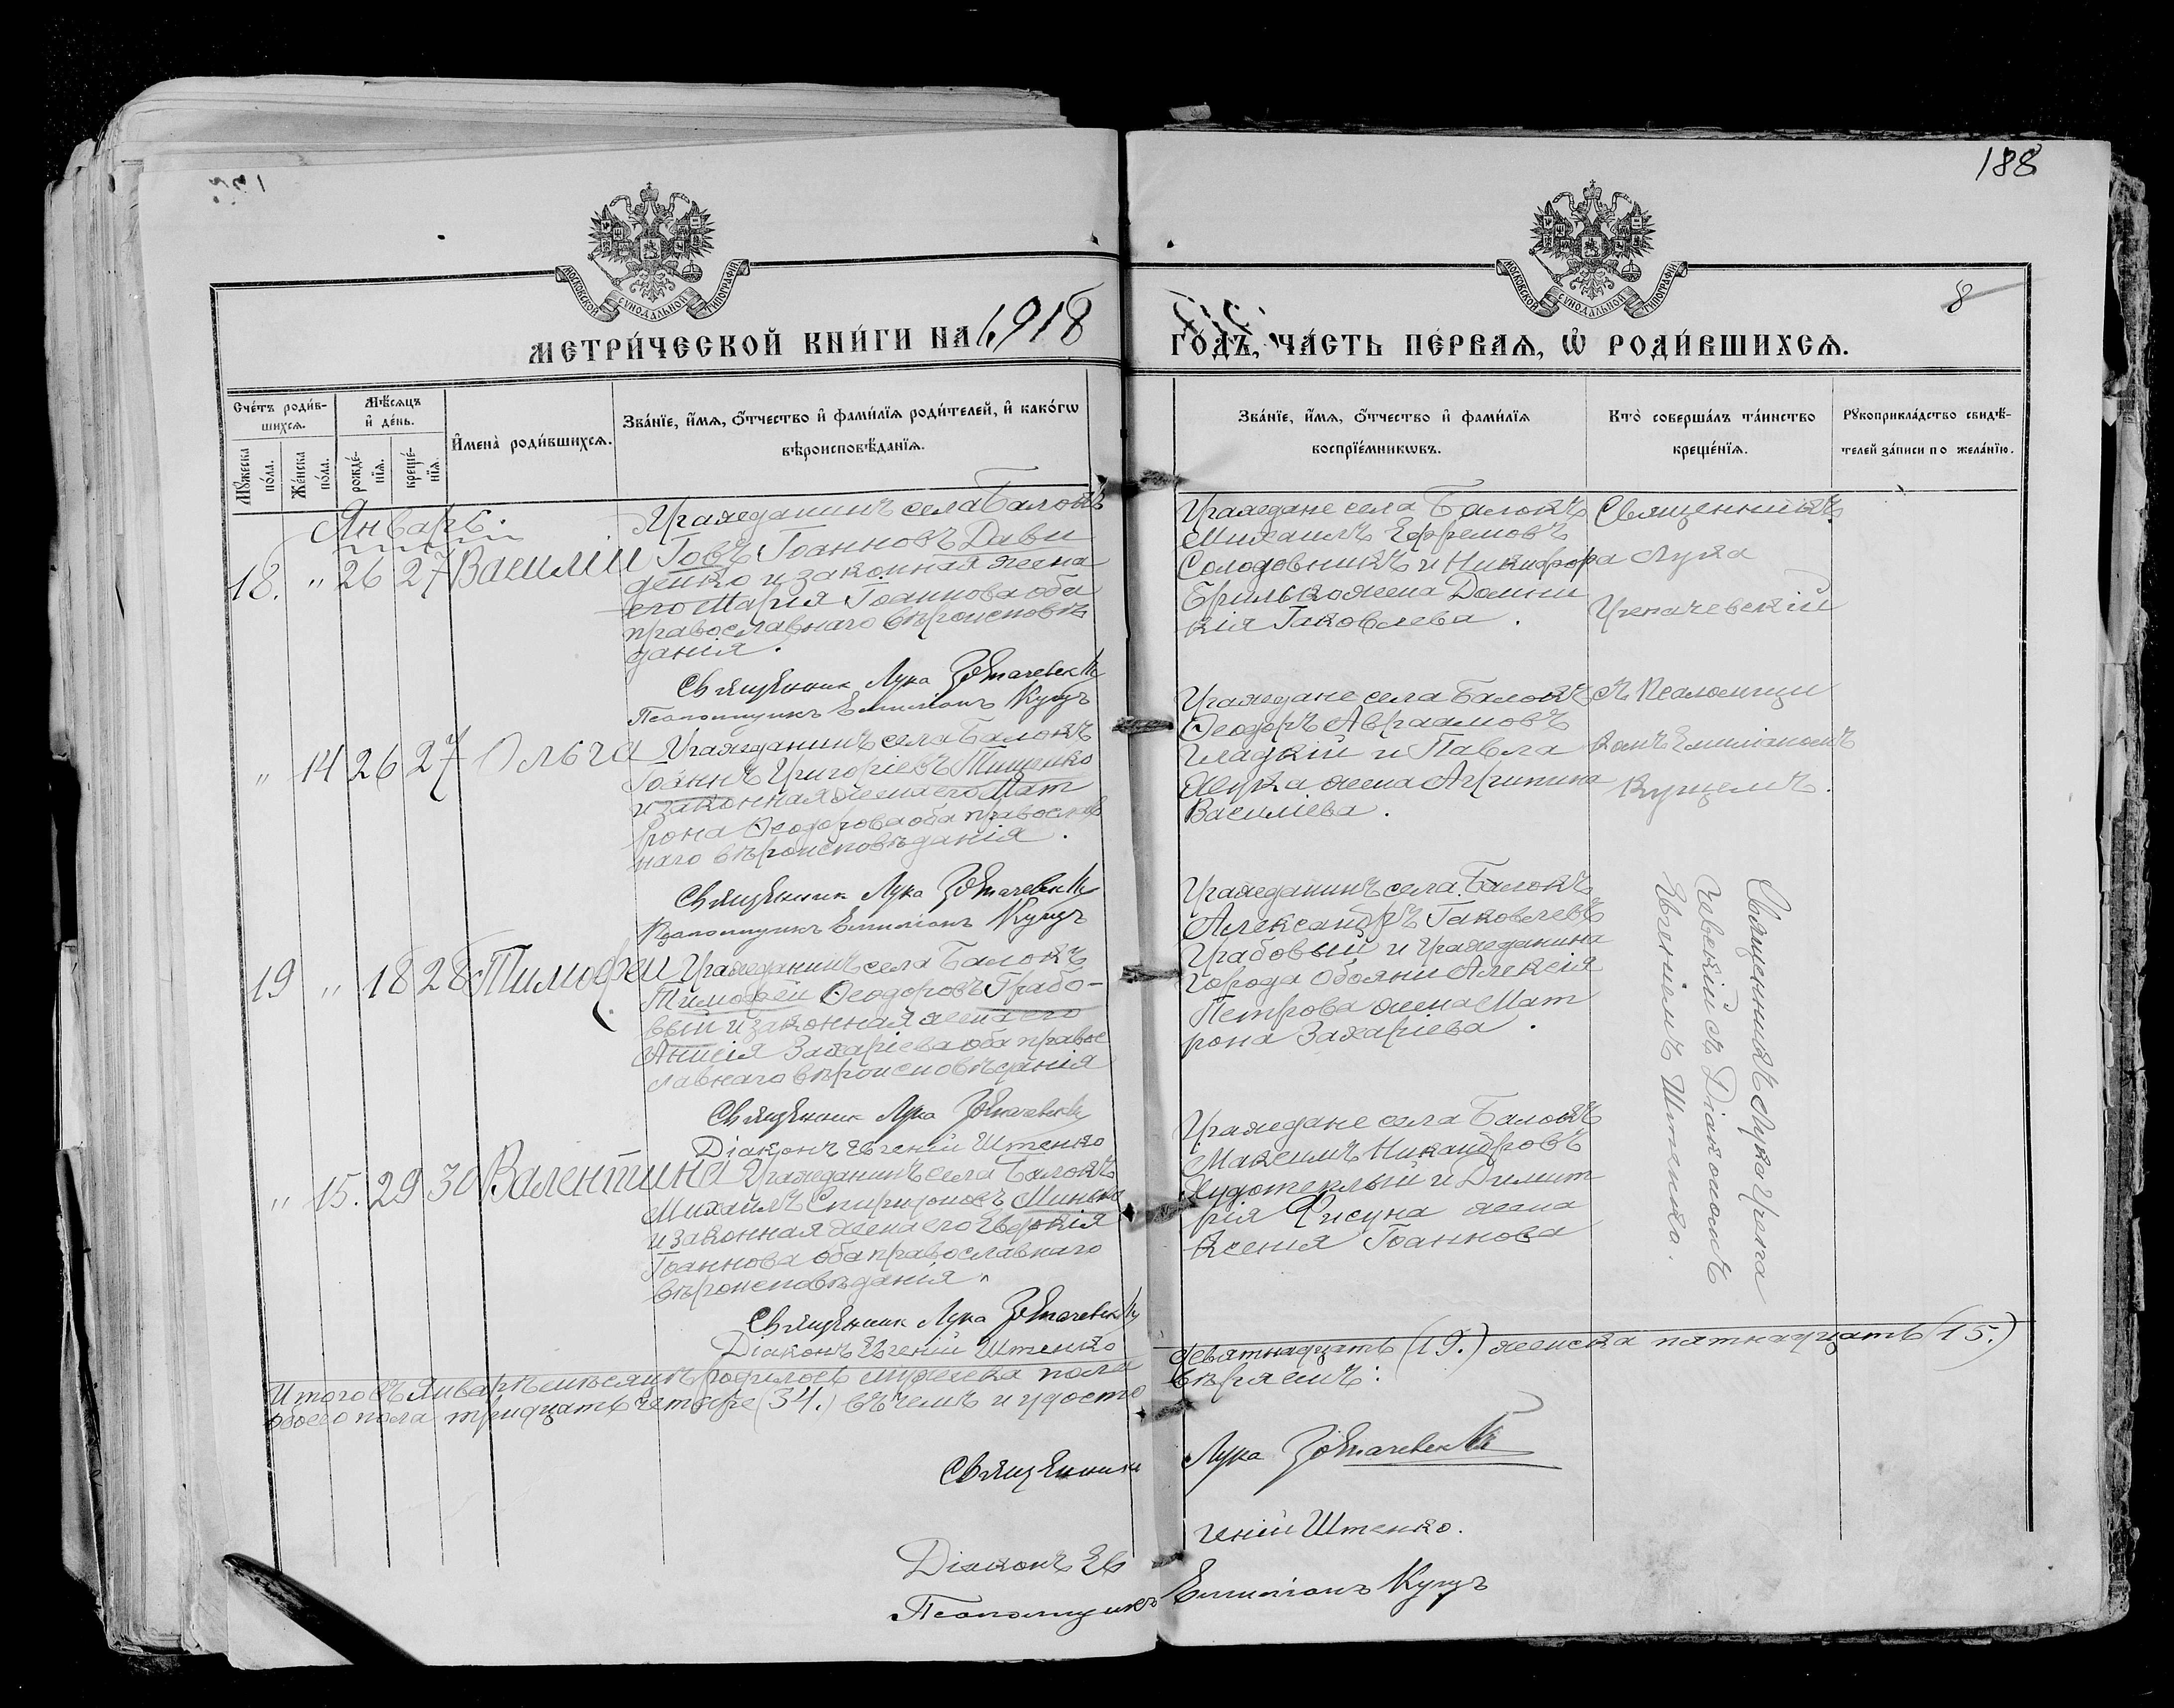 188
8
МОСКОВСКОЙ СѴНОДАЛЬНОЙ ТИПОГРАФІИ
МОСКОВСКОЙ СѴНОДАЛЬНОЙ ТИПОГРАФІИ
МЕТРИ́ЧЕСКОЙ КНИ́ГИ НА 1918
ГО́ДЪ, ЧА́СТЬ ПЕ́РВАѦ, Ѡ҆ РОДИ́ВШИХСѦ.
Сче́тъ роди́в-
шихсѧ.
Мѣ́сѧцъ
и҆ де́нь.
Мꙋ́жеска
по́ла.
Же́нска
по́ла.
рожде́-
нїѧ.
креще́-
нїѧ.
И҆мена̀ роди́вшихсѧ.
Зва́нїе, и҆́мѧ, ѻ҆́тчество и҆ фами́лїѧ роди́телей, и҆ како́гѡ
вѣроисповѣ́данїѧ.
Зва́нїе, и҆́мѧ, ѻ҆́тчество и҆ фами́лїѧ
воспрїе́мникѡвъ.
Кто̀ соверша́лъ та́инство
креще́нїѧ.
Рꙋкоприкла́дство свидѣ́-
телей за́писи по жела́нїю.
Январь.
18. " 26 27 Василій
Гражданинъ села Балокъ
Іовъ Іоанновъ Дави
денко и законная жена
его Марія Іоаннова оба
православнаго вѣроисповѣ
данія.
Священник Лука
Псаломщикъ Емиліанъ Кущъ
Граждане села Балокъ
Михаилъ Ефремовъ
Солодовникъ и Никифора
жена Домни
кія Іаковлева.
Священникъ
Лука
" 14 26 27 Ольга
Гражданинъ села Балокъ
Іоаннъ Григоріевъ Тищенко
и законная жена его Мат
рона Ѳеодорова оба православ
наго вѣроисповѣданія.
Священник Лука
Псаломщикъ Емиліанъ Кущъ
Граждане села Балокъ
Ѳеодоръ Авраамовъ
Гладкій и Павла
жена Агрипина
Василіева.
съ Псаломщи
комъ Емиліаномъ
Кущемъ.
19 " 18 28 Тимофей
Гражданинъ села Балокъ
Тимофей Ѳеодоровъ Грабо-
вый и законная жена его
Анисія Захаріева оба правос
лавнаго вѣроисповѣданія
Священник Лука
Діаконъ Евгеній Штенко
Гражданинъ села Балокъ
Александръ Іаковлевъ
Грабовый и гражданина
города Обояни Алексія
Петрова жена Мат
рона Захаріева.
Священникъ Лука Грета
чевскій съ Діакономъ
Евгеніемъ Штенко.
" 15. 29 30 Валентина
Гражданинъ села Балокъ
Михаилъ Спиридоновъ Минько
и законная жена его Евдокія
Іоаннова оба православнаго
вѣроисповѣданія.
Священник Лука
Діаконъ Евгеній Штенко
Граждане села Балокъ
Максимъ Никандровъ
Худотеплый и Димит
рія Фисуна жена
Ксенія Іоаннова
Итого въ Январѣ мѣсяцѣ родилось мужеска пола
девятнадцать (19.) женска пятнадцать (15.)
обоего пола тридцать четыре (34.) въ чемъ и удосто
вѣряемъ:
Священник Лука
Діаконъ Евгеній Штенко.
Псаломщикъ Емиліанъ Кущъ